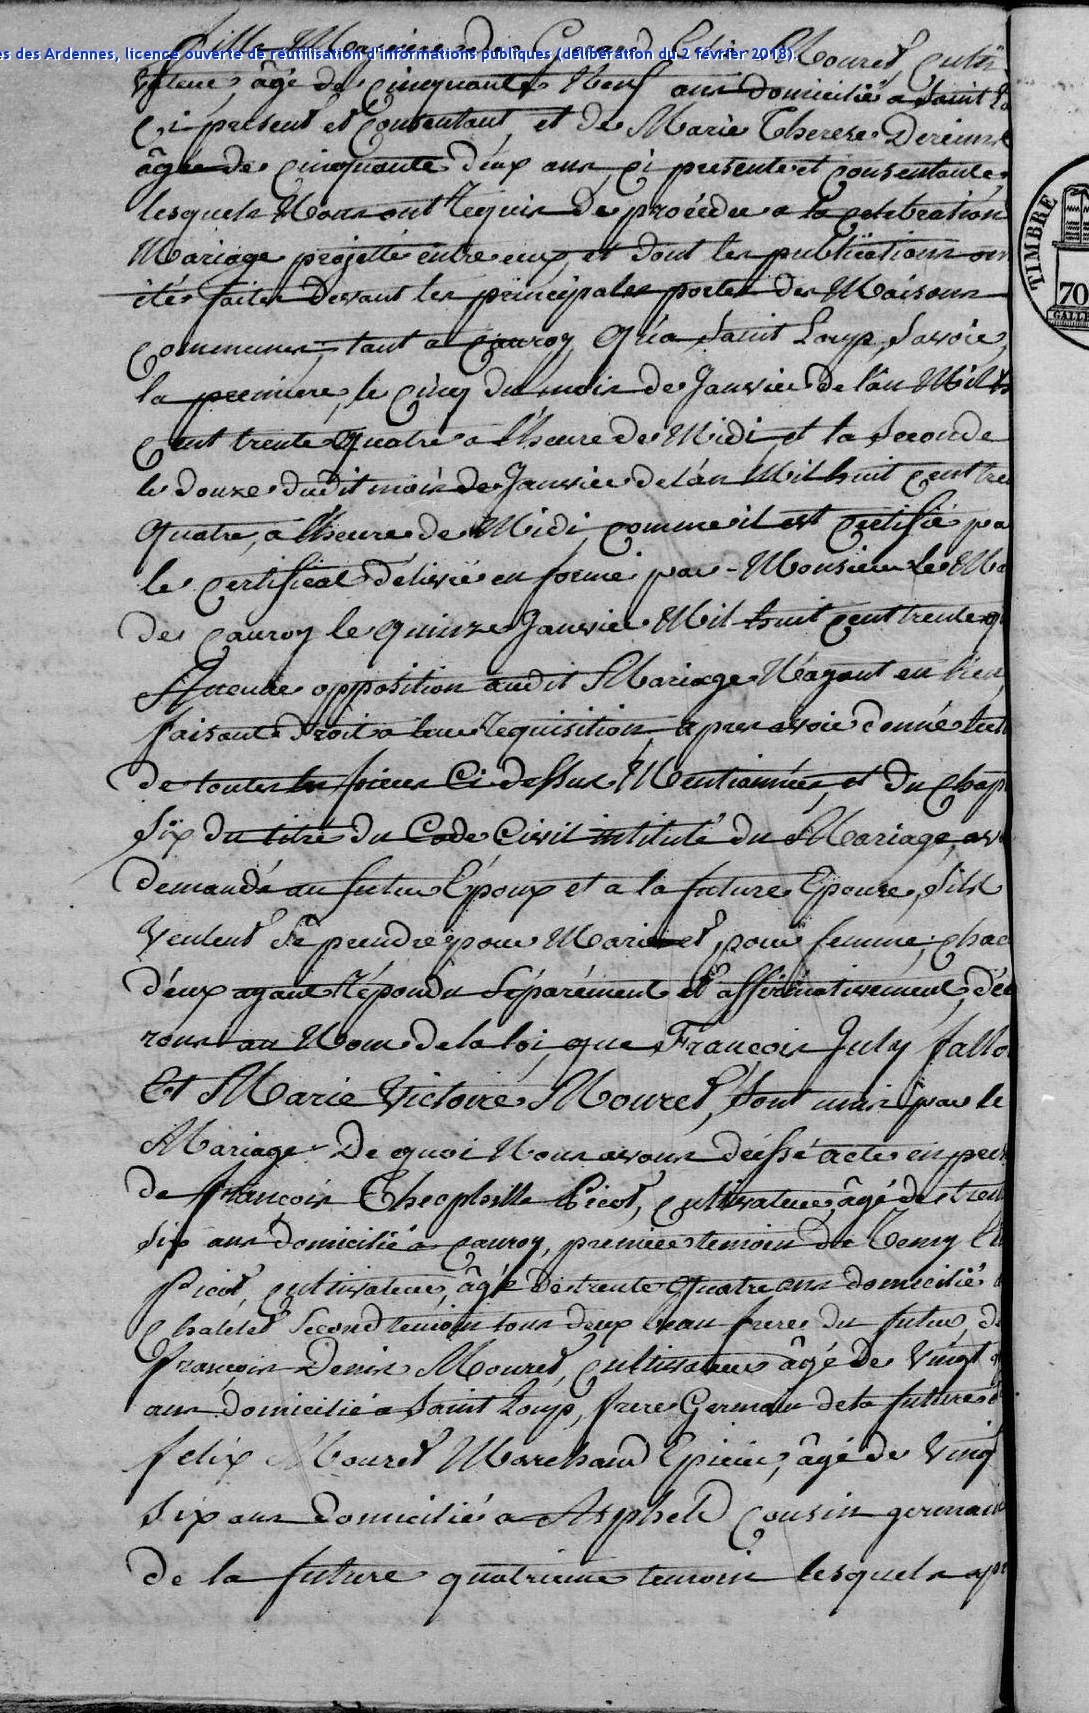 es des Ardennes, licence ouverte de réutilisation d'informations publiques (délibération du 2 février 2018).
fille Mouret, culti
vateur, âgé de cinquante Neuf ans domicilié a Saint
Ci présent et Consentant, et de Marie Therese
âgée de cinquante deux ans, ci presente et consentante,
lesquels Nous ont requis de procéder a la celebration
Mariage projetté entre eux, et dont les publications on
étés faites devant les principales portes des Maisons
Communes, tant a Cauroy, Qu'a Saint Loup, Savoir,
la premiere, le cinq du mois de Janvier de l'an Mil
Cent trente Quatre a l'heure de Midi, et la Seconde
le douze dudit mois de Janvier de l'an Mil huit cent tre
Quatre, a l'heure de Midi, comme il est certifié pa
le certificat délivré en forme par - Monsieur le Ma
de Cauroy le quinze Janvier Mil huit cent trente q
Aucune opposition audit Mariage N'ayant eu lieu,
faisant droit a leur requisition, apres avoir donné lect
de toutes les pieces Ci dessus Mentionnées, et du chap
Six du titre du Code Civil intitulé du Mariage, av
demandé au futur Époux et a la future Épouse, S'ils
Veulent Se prendre pour Mari et pour femme, chac
d'eux ayant Répondu Séparément et affirmativement, déc
rons au Nom de la loi, que François July fallo
Et Marie Victoire Mouret, Sont unis par le
Mariage De quoi Nous avons dressé acte en pres
de françois Theophille Picot, cultivateur, âgé de tren
Six ans domicilié a Cauroy, premier temoin de Remy
Picot, cultivateur, âgé de trente Quatre ans domicilié a
Chatelet Second temoin tous deux beau freres du futur, de
françois Denis Mouret, Cultivateur âgé de Vingt
ans domicilié a Saint Loup, frere Germain de la future
felix Mouret Marchand Epicier, âgé de Ving
Six ans domicilié a Aspheld Cousin germain
de la future quatrieme temoin lesquels ap
TIMBRE
70